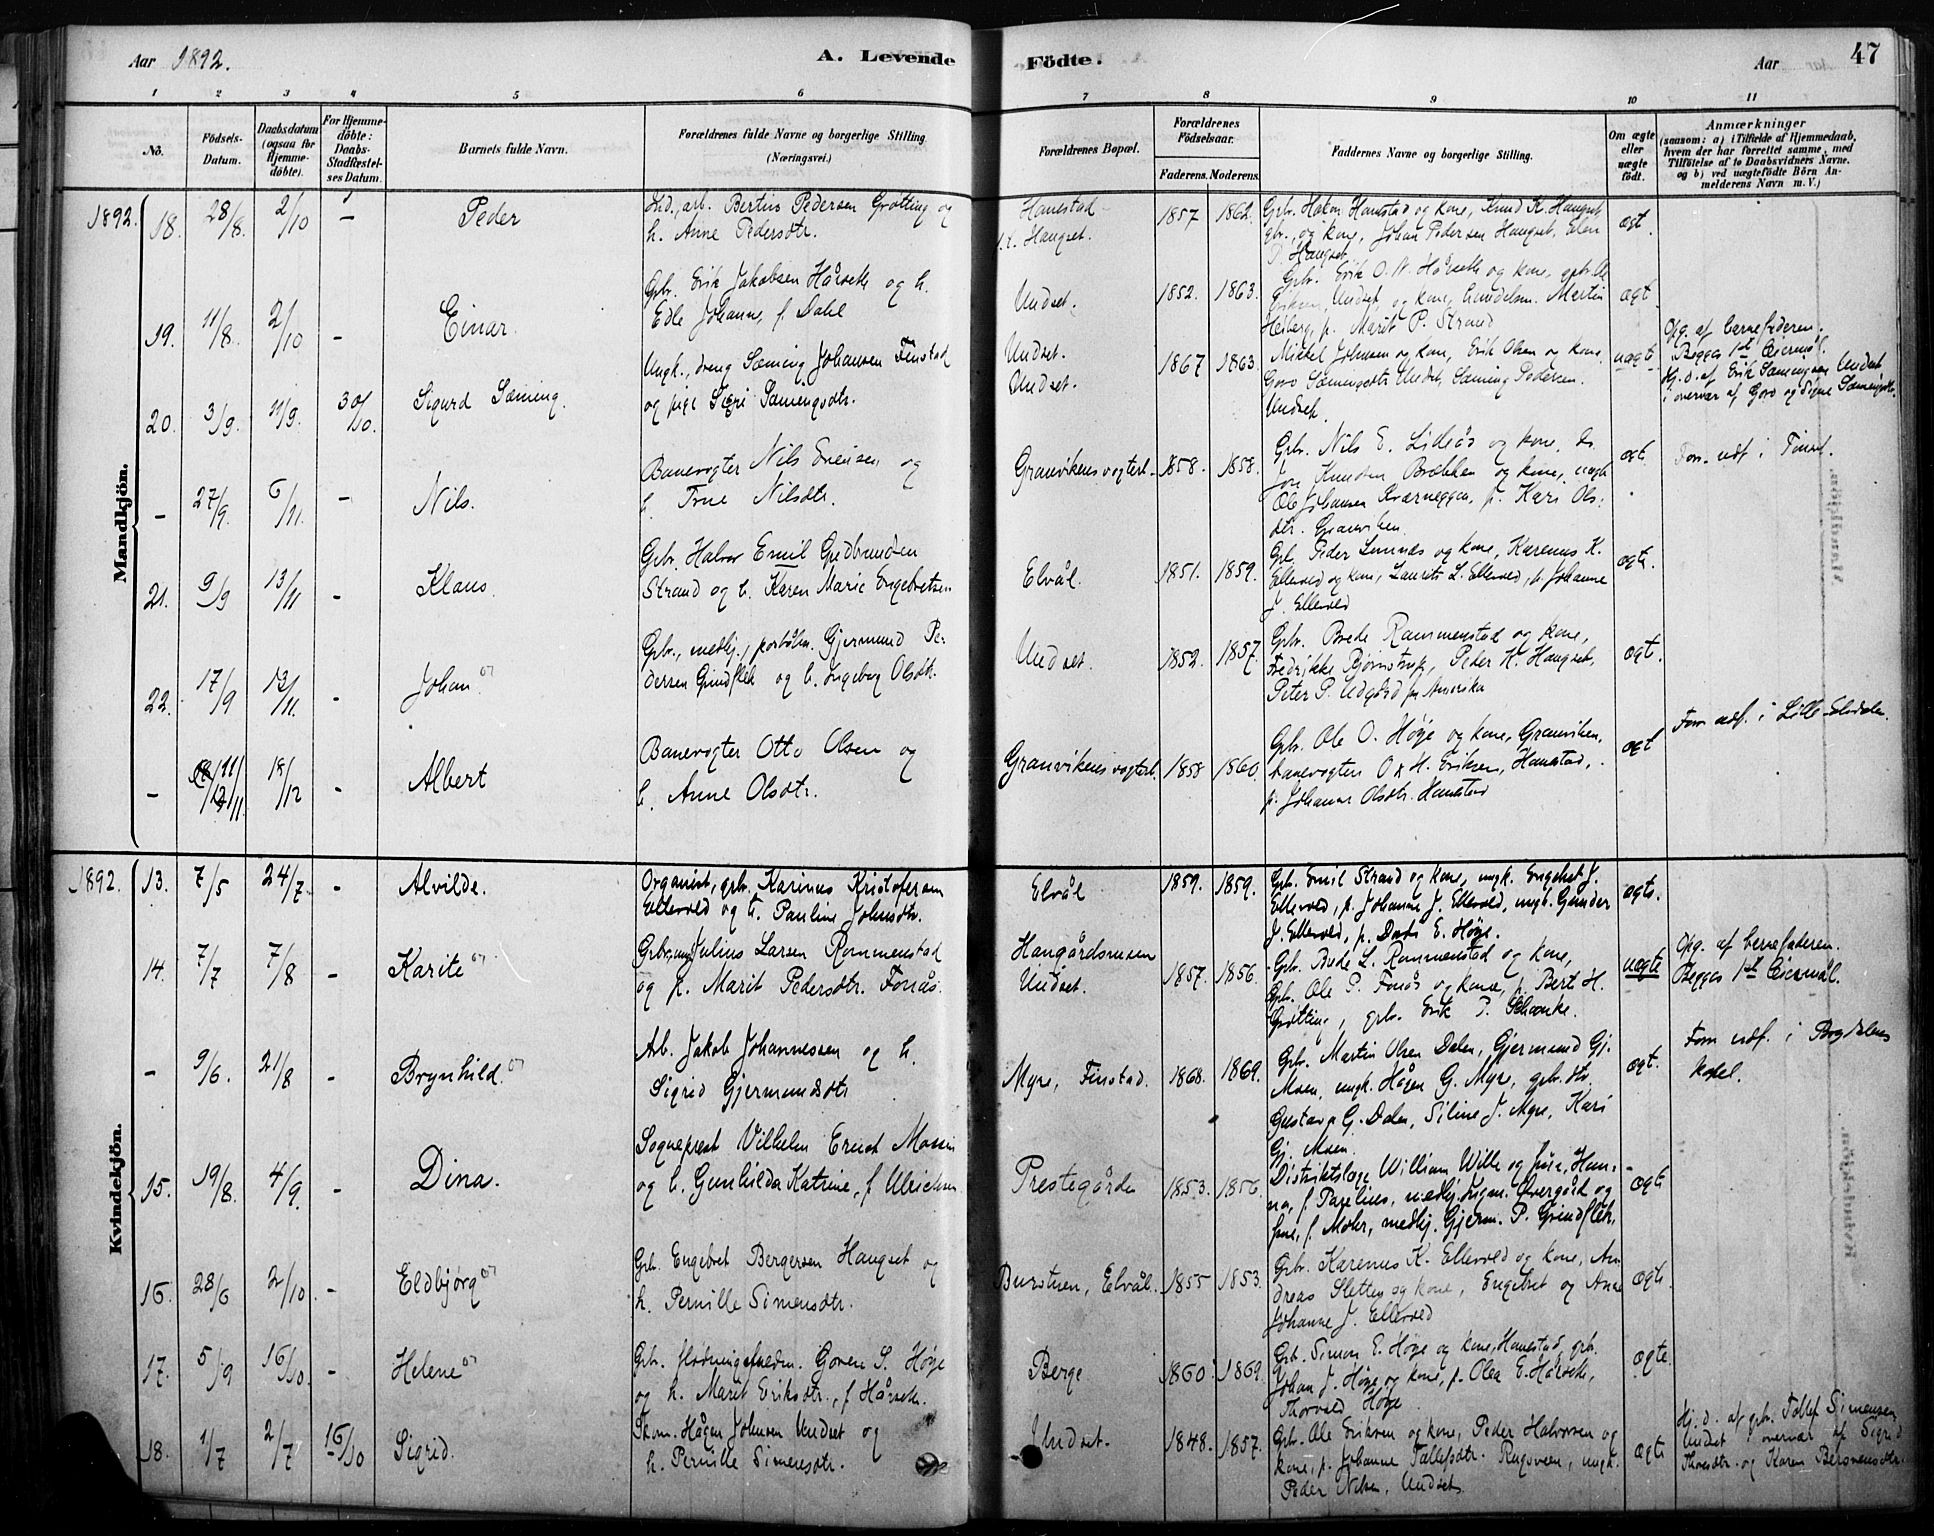 Aar 1892. A. Levende Födte. Aar 47
1 2 3 4 5 6 7 8 9 10 11
No.
Födsels-
Datum.
Daabsdatum
(ogsaa for
Hjemme-
döbte).
For Hjemme-
döbte:
Daabs-
Stadfæstel-
ses Datum.
Barnets fulde Navn.
Forældrenes fulde Navne og borgerlige Stilling
(Næringsvei.)
Forældrenes Bopæl.
Forældrenes
Födselsaar.
Faderens. Moderens.
Faddernes Navne og borgerlige Stilling.
Om ægte
eller
uægte
födt.
Anmærkninger
(saasom: a) i Tilfælde af Hjemmedaab,
hvem der har forrettet samme, med
Tilföielse af to Daabsvidners Navne.
og b) ved uægtefödte Börn An-
melderens Navn m. V.)
Mandkjön.
1892. 18. 28/8. 2/10 – Peder
arb. Bertius Pedersen Grøtting og
h. Anne Pedersdtr.
Hanestad
Haugset.
1857 1862.
Gbr. Hakon Hanestad og kone, Knud K. Haugset,
gbr. og kone, Johan Pedersen Haugset, Elen
P. Haugset
ægt.
19. 11/8. 2/10 – Einar.
Gbr. Erik Jakobsen Hårseth og h.
Edle Johanne, f. Dahl
Undset.
1852. 1863.
Gbr. Erik O. N. Hårseth og kone, gbr. Ole
Undset og kone, handelsm. Martin
Hedberg, p. Marit P. Strand
ægt.
20. 3/9. 11/9. 30/10. Sigurd Sæming.
Ungk., dreng Sæming Johansen Finstad
og pige Sigri Sæmingsdtr.
Undset.
Undset.
1867 1863.
Mikkel Johnsen og kone, Erik Olsen og kone,
Goro Sæmingsdtr. Undset, Sæming Pedersen.
Undset.
uægte
Opg. af barnefaderen.
Begges 1st Leiermål.
Hj. d. af Erik Sæmingsen Undset
i overvær af Goro og Signe Sæmingsdtr.
– 27/9. 6/11. – Nils.
Banevogter Nils Evensen og
h. Trne Nilsdtr.
Granvikens vogterb.
1858. 1858.
Gbr. Nils E. Lidsås og kone, do
Jon Knudsen Brækken og kone, ungk
Ole Johansen Kværneggen, p. Kari Ols-
dtr. Granviken.
ægt.
Forr. udf. i Tinset.
21. 9/9 13/11 – Klaus.
Gbr. Halvor Emil Gudbrandsen
Strand og h. Karen Marie Engebretsen
Elvål.
1851. 1859.
Gbr. Peder Lunnæs og kone, Karenus K.
Ellevold og kone, Laurits L. Ellevold, p. Johanne
J. Ellevold
ægte.
22. 17/9 13/11. – Johan
Gbr., medhj., poståbn. Gjermund Pe-
dersen Grindflek og h. Ingeborg Olsdtr.
Undset.
1852. 1857.
Gbr. Brede Rommenstad og kone,
Fredrikke Bjørnstrup, Peder K. Haugset,
Peter P. Udgård fra Amerika
ægt.
– 18/12 – Albert
Banevogter Otto Olsen og
h. Anne Olsdtr.
Granvikens vogterb.
1858 1860.
Gbr. Ole O. Høye og kone, Granviken,
banevogter O. H. Eriksen, Hanestad,
p. Johanne Olsdtr. Hanestad
ægt
Forr. udf. i Lille-Elvdalen.
Kvindekjön.
1892. 13. 7/5 24/7. – Alvilde.
Organist, gbr. Karinus Kristofersen
Ellevold og h. Pauline Johnsdtr.
Elvål
1859. 1859.
Gbr. Emil Strand og kone, ungk. Engebret J.
Ellevold, p. Johanne J. Ellevold, ungk. Gunder
J. Ellevold, p. E. Høye.
ægte.
14. 7/7 7/8 – Karite
Gbr., ungk. Julius Larsen Rommenstad
og p. Marit Pedersdtr. Fonås.
Haugårdsmoen
Undset.
1857. 1856.
Gbr. Brede L. Rommenstad og kone,
Gbr. Ole P. Fonås og kone, p. Bert H.
Grøtting, gbr. Erik P. Schanke.
uægte
Opg. af barnefaderen.
Begges 1st Leiermål.
– 9/6. 21/8 – Brynhild.
Arb. Jakob Johannessen og h.
Sigrid Gjermundsdtr
Myre, Finstad.
1868. 1869.
Gbr. Martin Olsen Dalen, Gjermund Gj.
Moen, ungk. Hågen G. Myre, gbr. dtr.
Gustava G. Dalen, Siline J. Myre, Kari
Gj. Moen.
ægt.
Forr. udf. i
kapel.
15. 19/8. 4/9. – Dina.
Sogneprest Vilhelm Ernst
og h. Gunhilda Katrine, f. Ulrichsen
Prestegården
1853. 1856.
Distriktslæge William Wille og frue, Han-
na, f. Parelius, medhj. Ingm. Øvergård og
frue, f. Mohr, medhj. Gjerm. P. Grindflek,
ægte
16. 28/6 2/10. – Eldbjørg
Gbr. Engebret Bergersen Haugset og
h. Pernille Simensdtr.
Burstuen, Elvål.
1855 1853.
Gbr. Karenus K. Ellevold og kone, An-
dreas Sletten og kone, Engebret og Anne
Johanne J. Ellevold
ægte
17. 5/9 16/10. – Helene
Gbr. Goren S. Høye
og h. Marit Eriksdtr., f. Hårseth.
Berge
1860. 1869.
Gbr. Simon E. Høye og kone, Hanestad, gbr.
Johan J. Høye og kone, p. Olea E. Hårseth,
Thorvald Høye
ægte.
18. 1/7 2/7 16/10 Sigrid.
Hågen Johnsen Undset og
h. Pernille Simensdtr.
Undset.
1848. 1857.
Gbr. Ole Eriksen og kone, Peder Halvorsen og
kone, p. Johanne Tollefsdtr. Rugsveen, ungk.
Peder Nilsen, Undset
ægte
Hj. d. af gbr. Tollef Simensen
Undset i overvær af Sigrid
Thoresdtr. og Karen Bersvensdtr.